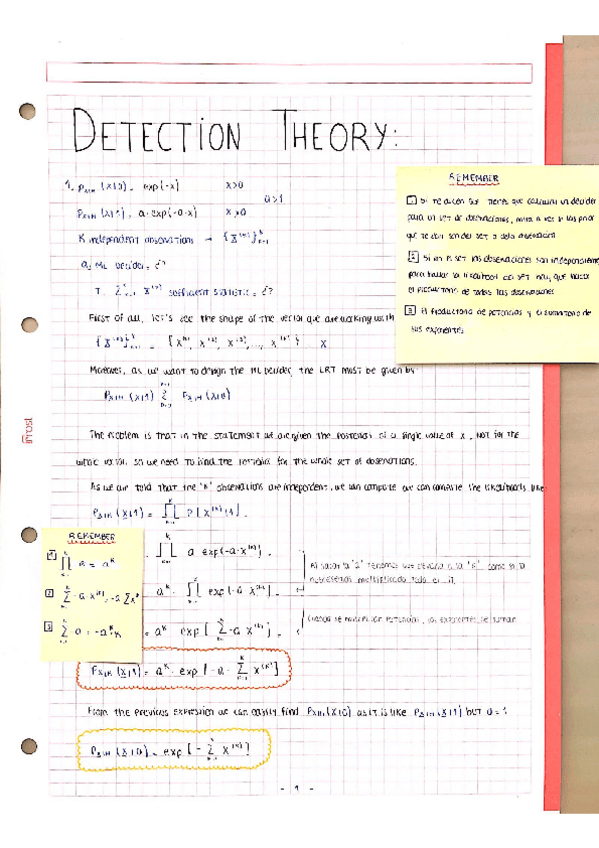 DETECTION THEORY:
1. p_{X|H}(x|0) = exp(-x) x>0
a>1
p_{X|H}(x|1) = a·exp(-a·x) x>0
K independent observations → {X^{(k)}}_{k=1}^{K}
a) ML decider = ¿?
T = Σ_{k=1}^{K} X^{(k)} sufficient statistic = ¿?
First of all, let's see the shape of the vector que are working with
{X^{(k)}}_{k=1}^{K} = [X^{(1)}, X^{(2)}, X^{(3)}, ..., X^{(K)}] = X
Moreover, as we want to design the ML decider, the LRT must be given by
P_{X|H}(X|1) P_{X|H}(X|0)
The problem is that in the statement we are given the of a single value of x, not for the
whole vector, so we need to find the for the whole set of observations.
As we are told that the "K" observations are independent, we can compute we can compute the likelihoods like
P_{X|H}(X|1) = ∏_{k=1}^{K} P[X^{(k)}|1] =
∏_{k=1}^{K} a exp(-a·X^{(k)}) =
a^K · ∏_{k=1}^{K} exp(-a·X^{(k)}) =
= a^K · exp[Σ_{k=1}^{K} -a·X^{(k)}] =
Al sacar la "a" tenemos que elevarla a la "K" como si la
multiplicado todo el
Cuando se multiplican potencias, los exponentes se suman
P_{X|H}(X|1) = a^K · exp[-a · Σ_{k=1}^{K} X^{(k)}]
From the previous expression we can easily find P_{X|H}(X|0) as it is like P_{X|H}(X|1) but a=1
P_{X|H}(X|0) = exp[-Σ_{k=1}^{K} X^{(k)}]
- 1 -
REMEMBER
1 Si te dicen que tienes que calcular un decider
para un set de observaciones, mira a ver si las
que te dan son del set o de la observación
2 Si en el set las observaciones son independientes
para hallar la likelihood del set hay que hacer
el productorio de todas las observaciones
3 El productorio de potencias es el sumatorio de
sus exponentes
REMEMBER
1 ∏_{k=1}^{K} a = a^K
2 Σ -a·X^{(k)} = -a Σ X^{(k)}
3 Σ -a = -a·K